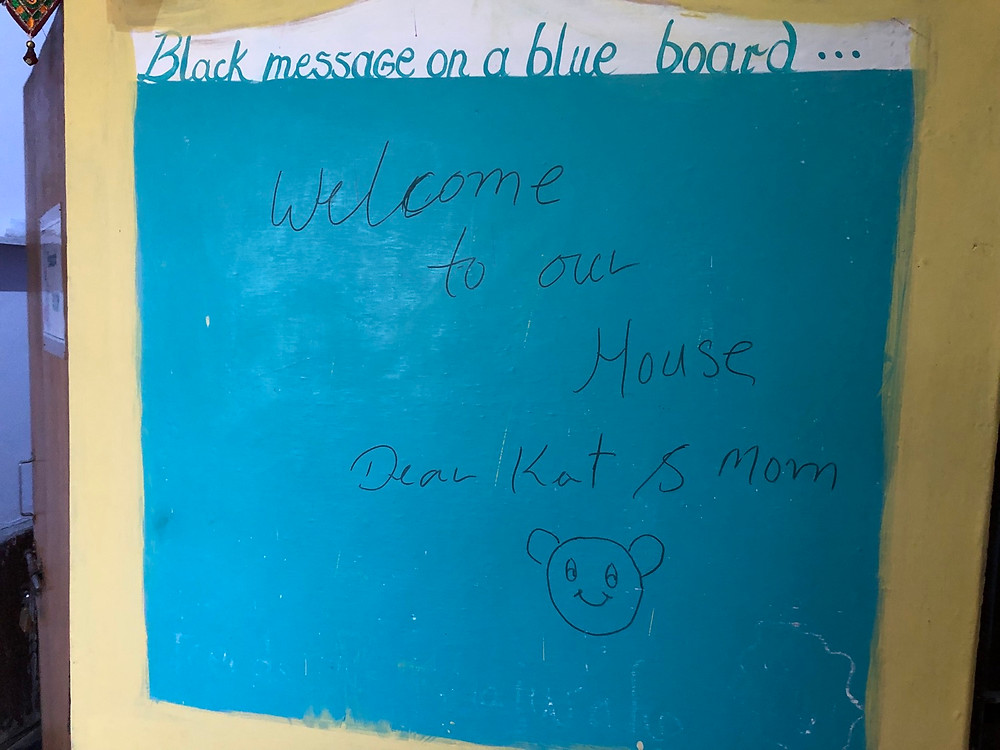 Black message on a blue board ...
Welcome
to our
House
Dear Kat & Mom